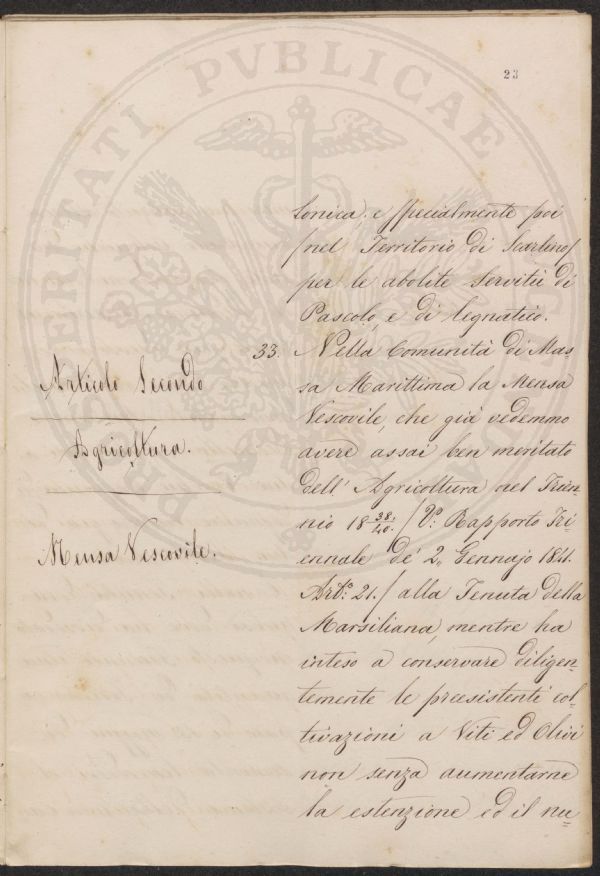 23
tonica, e specialmente poi
/nel Territorio di Scarlino/
per le abolite Servitù di
Pascolo, e di legnatico.
Articolo Secondo
Agricoltura.
Mensa Vescovile.
33. Nella Comunità di Mas
sa Marittima la Mensa
Vescovile, che già vedemmo
avere assai ben meritato
dell' Agricoltura nel Trien=
nio 18 38/40. / Vo. Rapporto Tri
ennale de' 2, Gennajo 1841.
Arto. 21. / alla Tenuta della
Marsiliana, mentre ha
inteso a conservare diligen=
temente le preesistenti col=
tivazioni a Viti ed Olivi
non senza aumentarne
la estenzione ed il nu=
PRO VERITATI PVBLICAE